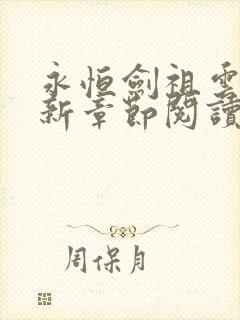 永恒劍祖雲
新章節閱讀
周保月